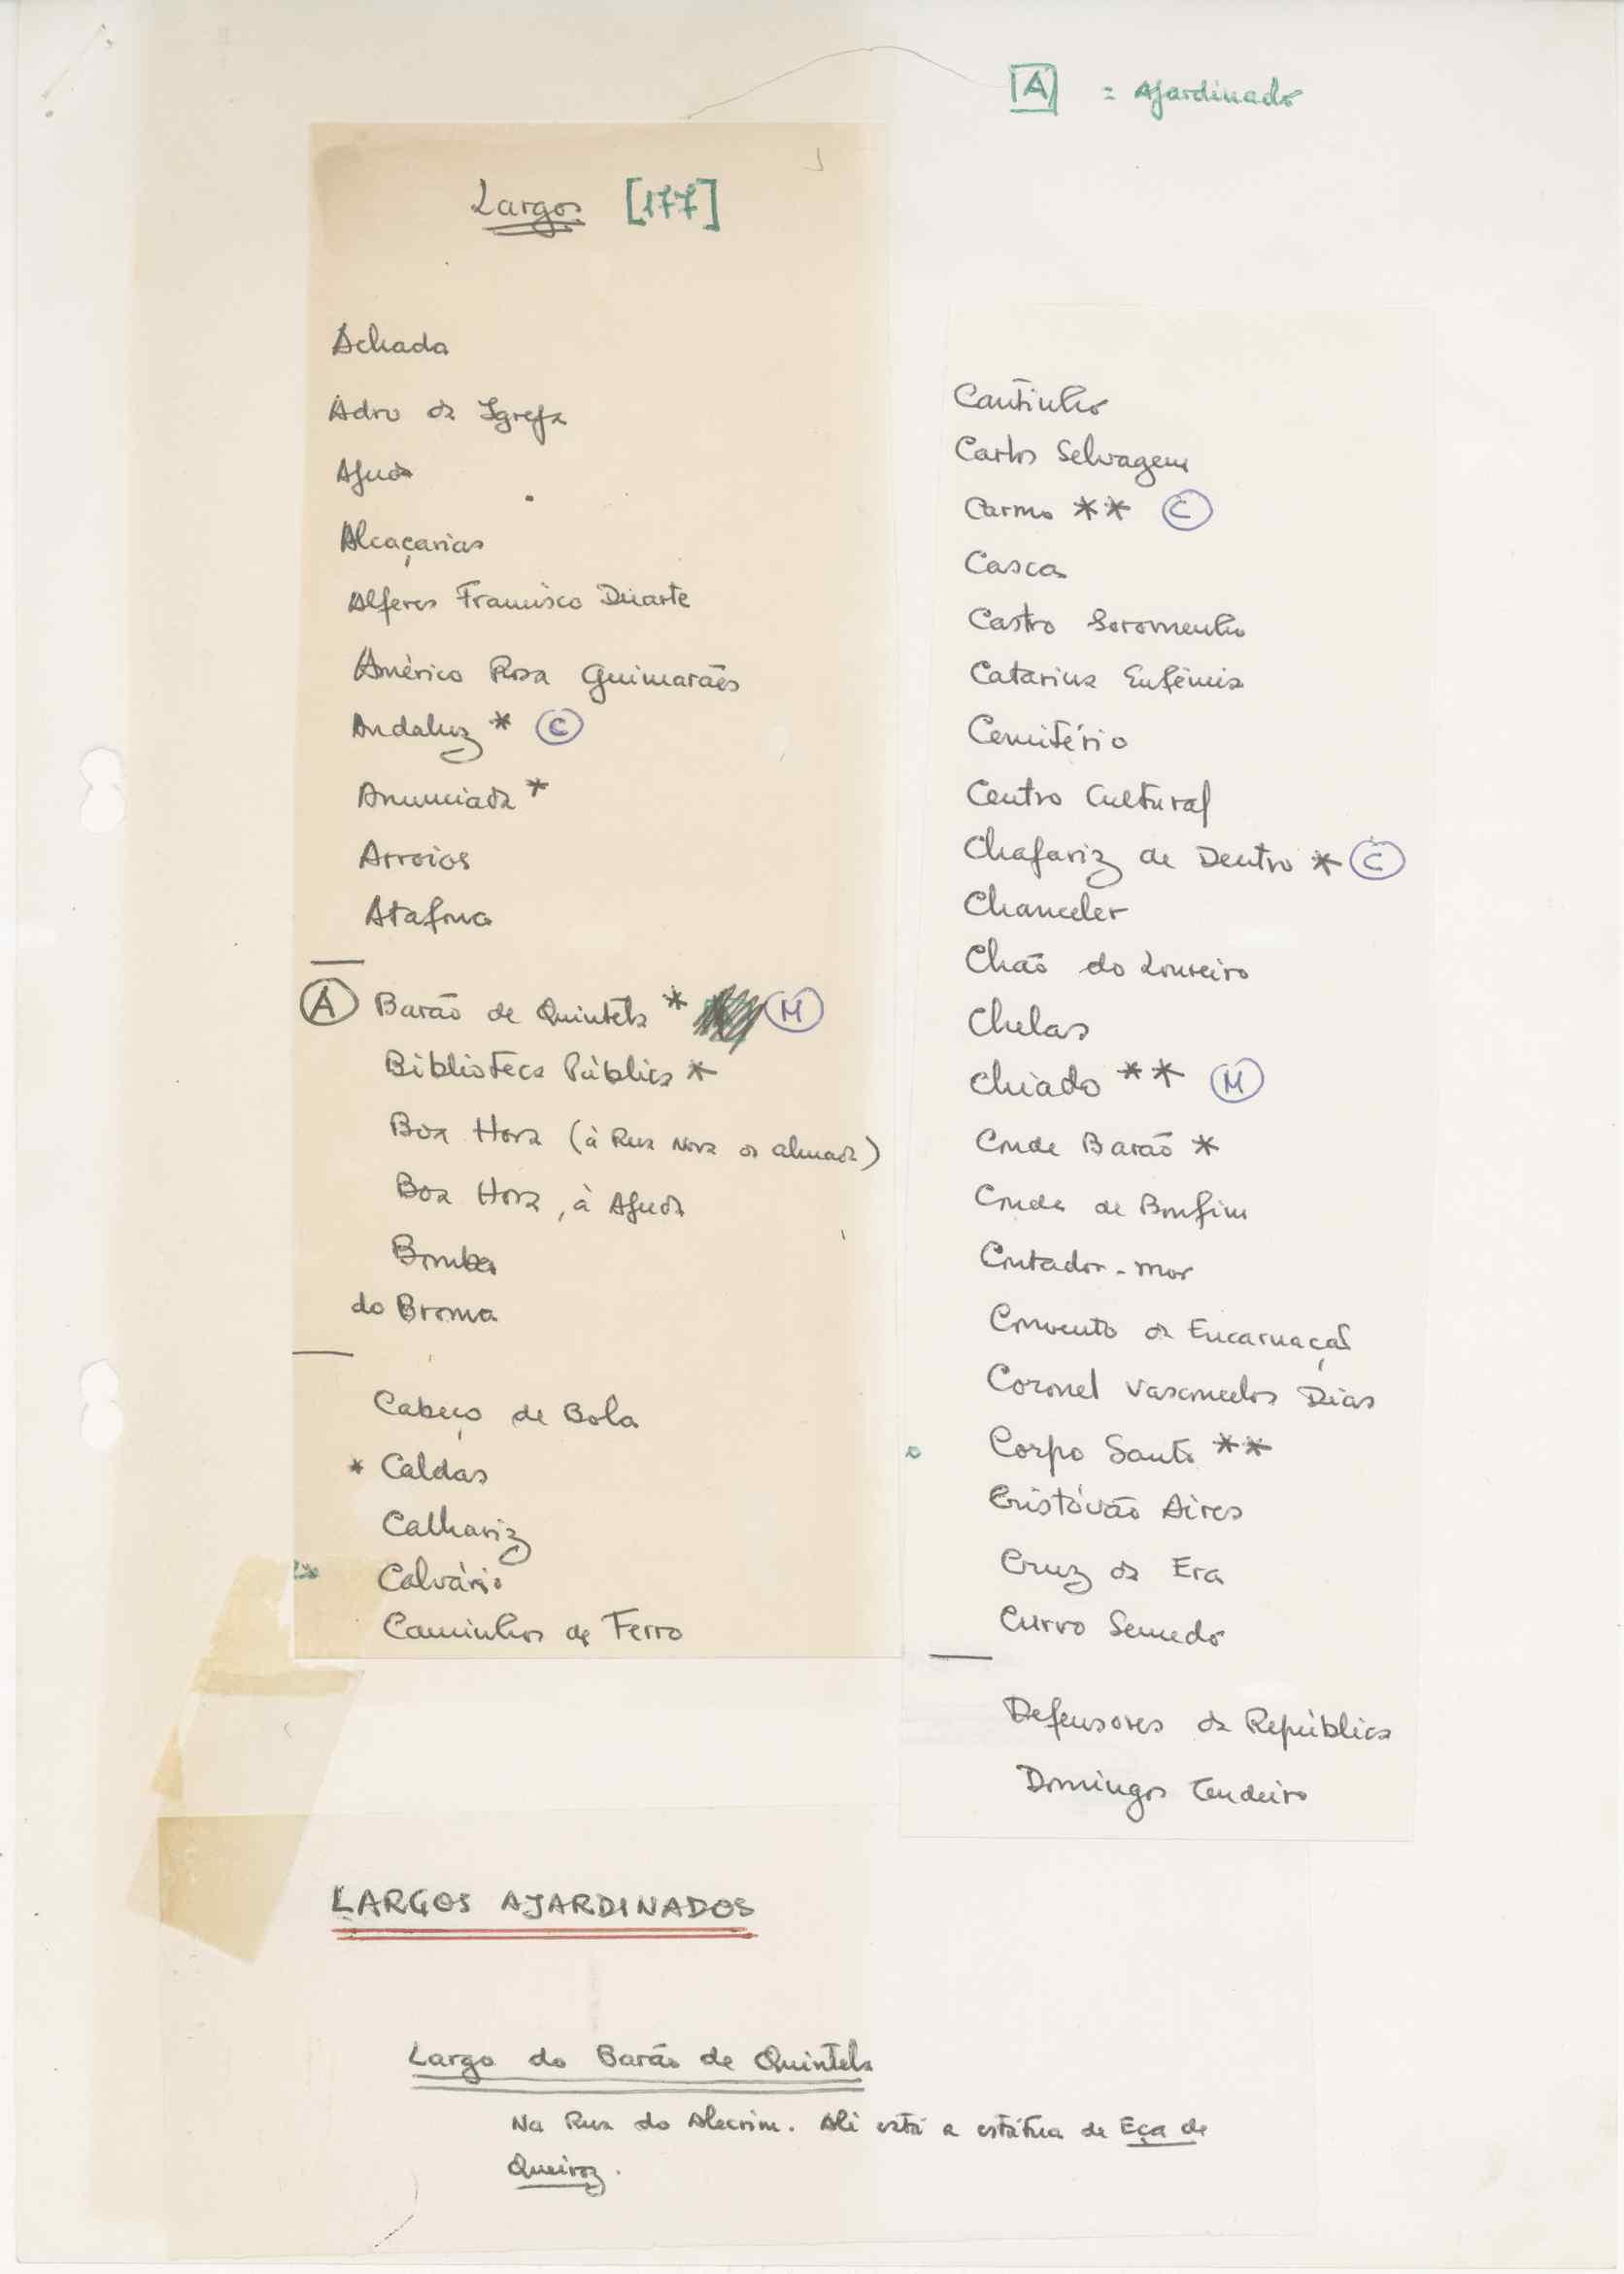 [A] = Ajardinado
Largos [177]
Achada
Adro da Igreja
Ajuda
Alcaçarias
Alferes Francisco Duarte
Américo Rosa Guimarães
Andaluz * (C)
Anunciada *
Arroios
Atafona
(A) Barão de Quintela * (M)
Biblioteca Pública *
Boa Hora (à Rua Nova do Almada)
Boa Hora, à Ajuda
Bomba
do Broma
Cabeço de Bola
* Caldas
Calhariz
Calvário
Caminhos de Ferro
Cantinho
Carlos Selvagem
Carmo ** (C)
Casca
Castro Soromenho
Catarina Eufémia
Cemitério
Centro Cultural
Chafariz de Dentro * (C)
Chanceler
Chão do Loureiro
Chelas
Chiado ** (M)
Conde Barão *
Conde de Bonfim
Contador-mor
Convento da Encarnação
Coronel Vasconcelos Dias
Corpo Santo **
Cristóvão Aires
Cruz da Era
Curvo Semedo
Defensores da República
Domingos Tendeiro
LARGOS AJARDINADOS
Largo do Barão de Quintela
Na Rua do Alecrim. Ali está a estátua de Eça de
Queiroz.